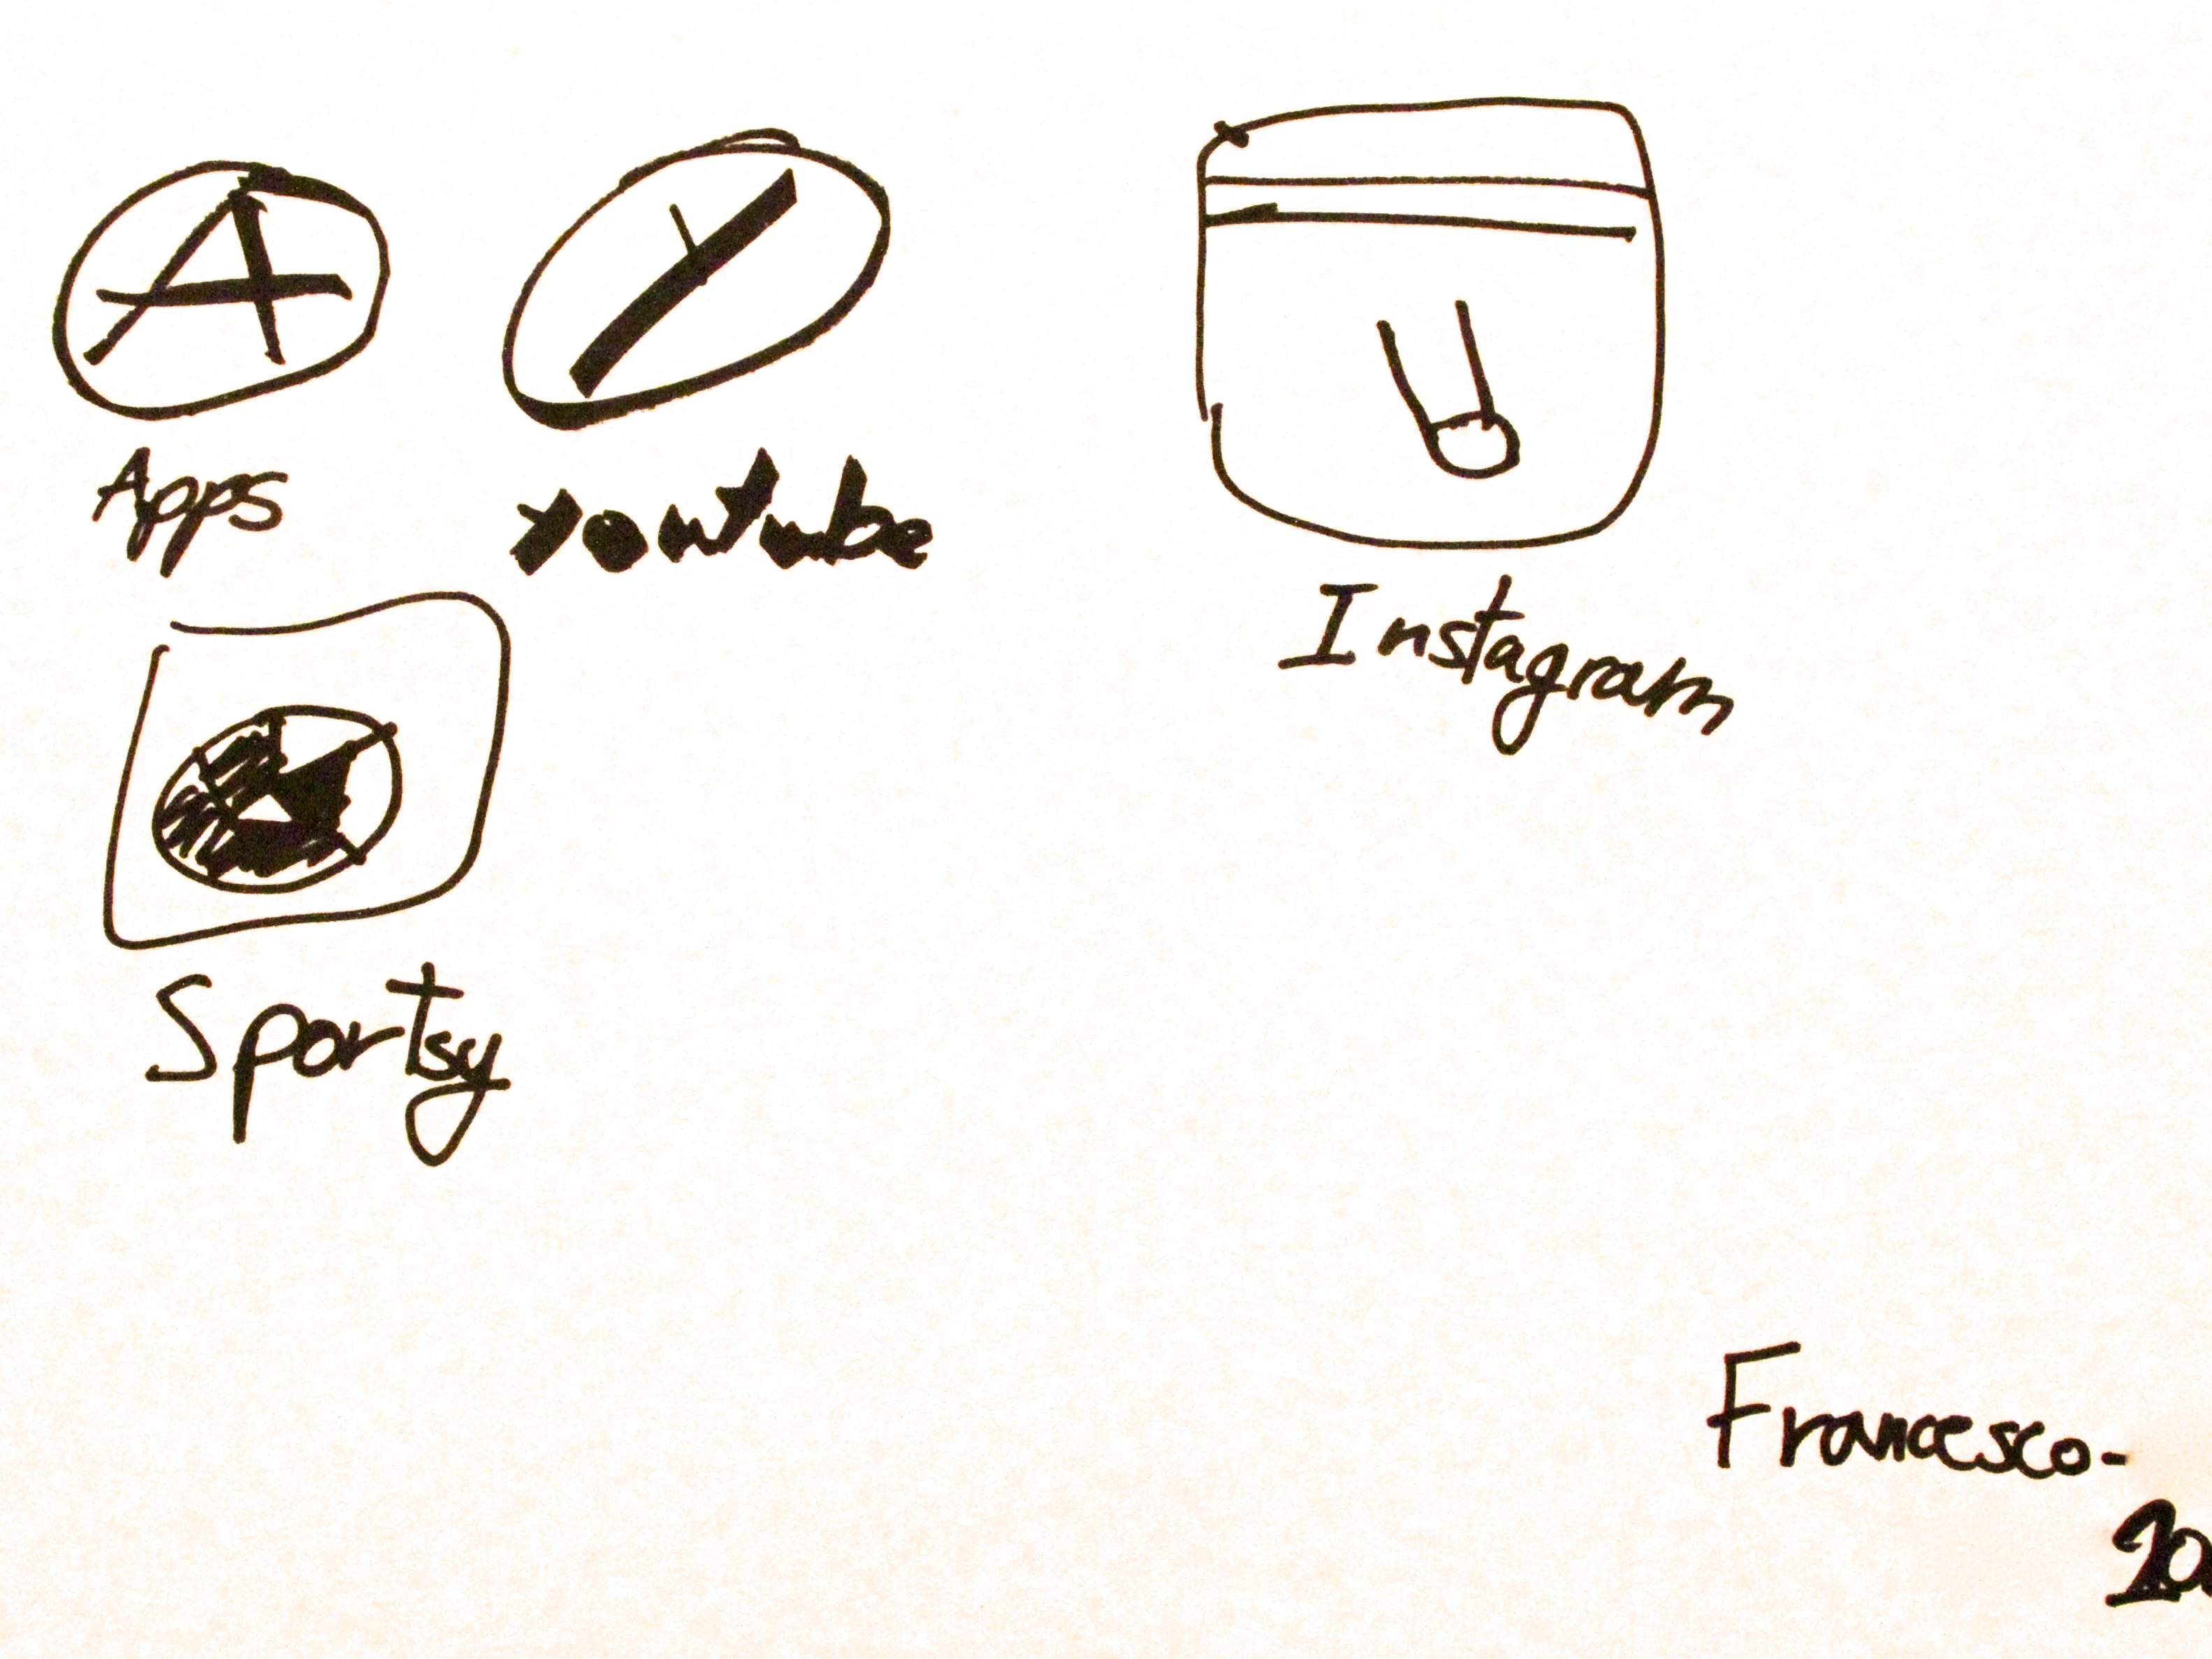 A
Y
Apps
Youtube
Instagram
Sportsy
Francesco-